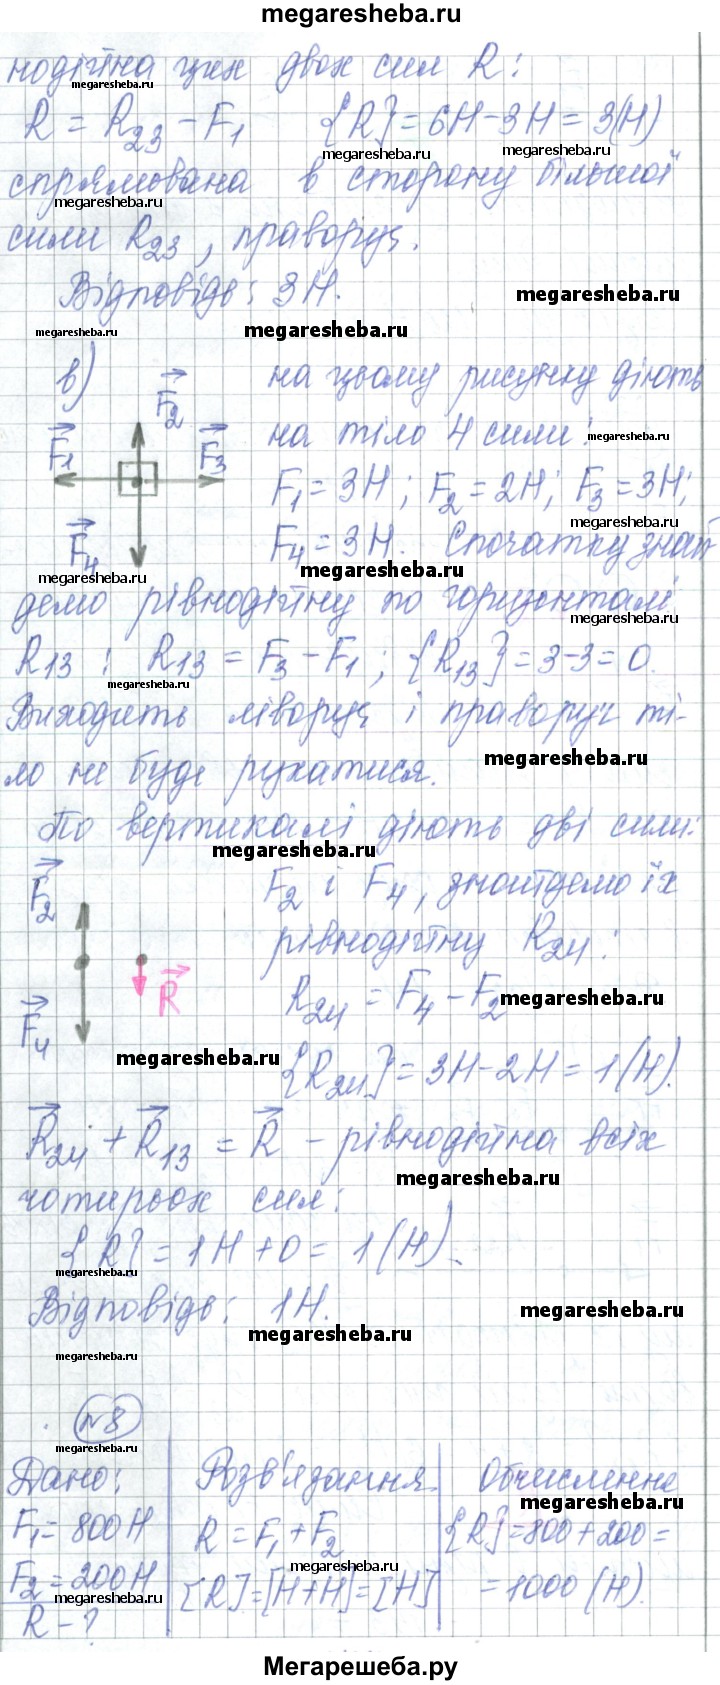 megaresheba.ru
нодійна цих двох сил R:
R = R23 - F1 {R} = 6Н - 3Н = 3(Н)
спрямована в сторону більшої
сили R23, праворуч.
Відповідь: 3Н.
в) F2
F1 F3
F4
на цьому рисунку діють
на тіло 4 сили:
F1 = 3Н; F2 = 2Н; F3 = 3Н;
F4 = 3Н. Спочатку знай
демо рівнодійну по горизонталі
R13: R13 = F3 - F1; {R13} = 3-3 = 0.
Виходить ліворуч і праворуч ті-
ло не буде рухатися.
По вертикалі діють дві сили:
F2 і F4, знайдемо їх
рівнодійну R24:
F2
R
F4
R24 = F4 - F2
{R24} = 3Н - 2Н = 1(Н).
R24 + R13 = R - рівнодійна всіх
чотирьох сил:
{R} = 1Н + 0 = 1(Н).
Відповідь: 1Н.
№8
Дано: Розв'язання Обчислення
F1 = 800Н R = F1 + F2 {R} = 800 + 200 =
F2 = 200Н [R] = [Н+Н] = [Н] = 1000 (Н).
R - ?
Мегарешеба.ру